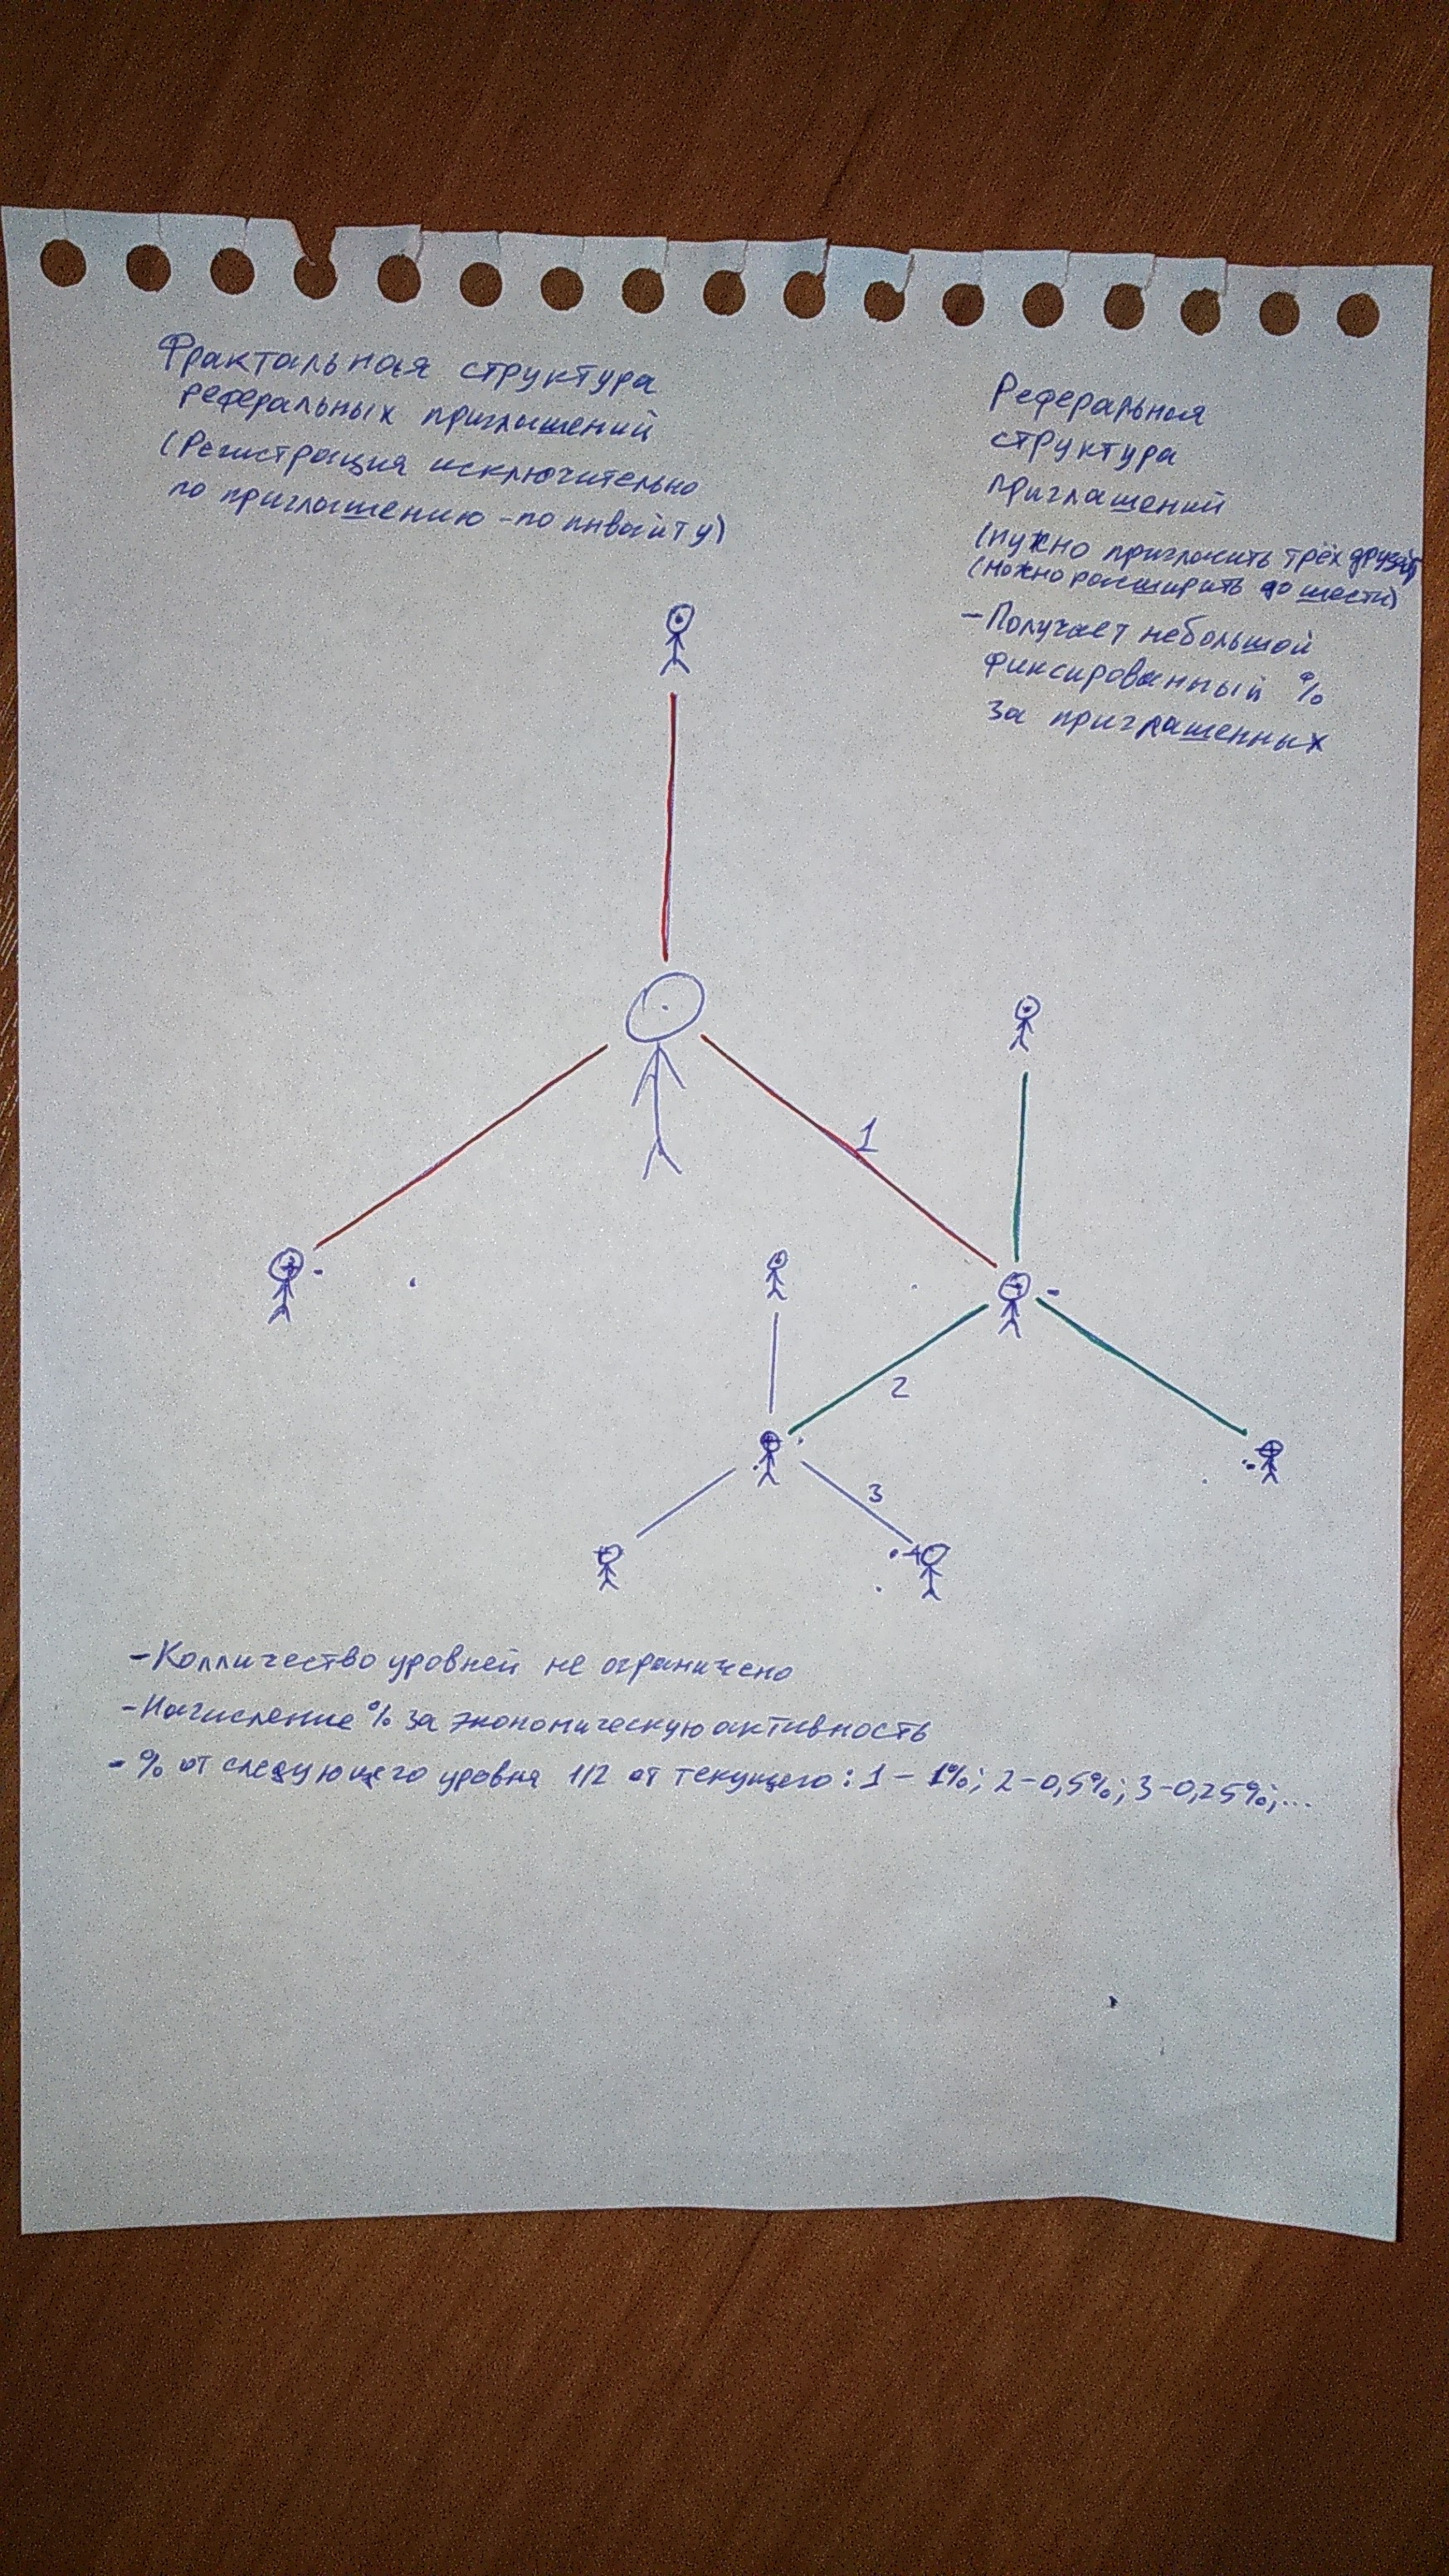 Фрактальная структура
реферальных приглашений
(Регистрация исключительно
по приглашению - по инвайту)
Реферальная
структура
приглашений
(нужно пригласить трёх друзей,
(можно расширить до шести)
- Получает небольшой
фиксированный %
за приглашенных
1
2
3
- Колличество уровней не ограничено
- Начисление % за экономическую активность
- % от следующего уровня 1/2 от текущего: 1 - 1%; 2 - 0,5%; 3 - 0,25%;...